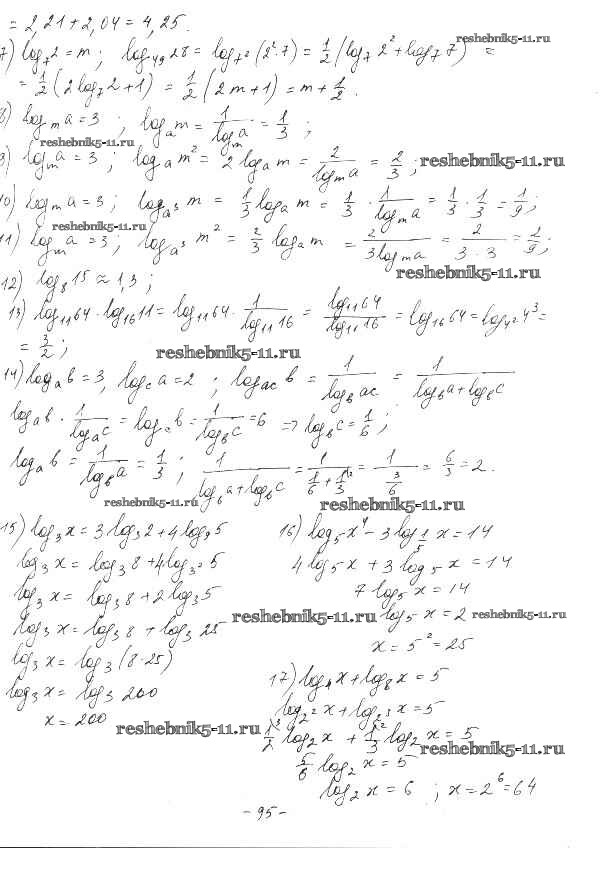 = 2,21 + 2,04 = 4,25.
reshebnik5-11.ru
7) log₇2 = m; log₄₉28 = log₇²(2²·7) = 1/2 (log₇2² + log₇7) =
= 1/2 (2log₇2 + 1) = 1/2 (2m + 1) = m + 1/2.
8) logₘa = 3; logₐm = 1/logₘa = 1/3;
reshebnik5-11.ru
9) logₘa = 3; logₐm² = 2logₐm = 2/logₘa = 2/3;
reshebnik5-11.ru
10) logₘa = 3; logₐ³m = 1/3 logₐm = 1/3 · 1/logₘa = 1/3 · 1/3 = 1/9;
reshebnik5-11.ru
11) logₘa = 3; logₐ³m² = 2/3 logₐm = 2/3logₘa = 2/3·3 = 2/9;
reshebnik5-11.ru
12) log₈15 ≈ 1,3;
13) log₁₁64·log₁₆11 = log₁₁64 · 1/log₁₁16 = log₁₁64/log₁₁16 = log₁₆64 = log₄²4³ =
= 3/2;
reshebnik5-11.ru
14) logₐb = 3, log_c a = 2; log_ac b = 1/log_b ac = 1/(log_b a + log_b c)
logₐb · 1/logₐc = log_c b = 1/log_b c = 6 => log_b c = 1/6;
logₐb = 1/log_b a = 1/3; 1/(log_b a + log_b c) = 1/(1/6 + 1/3) = 1/(3/6) = 6/3 = 2.
reshebnik5-11.ru
reshebnik5-11.ru
15) log₃x = 3log₃2 + 4log₉5
log₃x = log₃8 + 4log₃²5
log₃x = log₃8 + 2log₃5
log₃x = log₃8 + log₃25
log₃x = log₃(8·25)
log₃x = log₃200
x = 200
16) log₅x⁴ - 3log_1/5 x = 14
4log₅x + 3log₅x = 14
7log₅x = 14
reshebnik5-11.ru
log₅x = 2
reshebnik5-11.ru
x = 5² = 25
17) log₄x + log₈x = 5
log₂²x + log₂³x = 5
1/2 log₂x + 1/3 log₂x = 5
reshebnik5-11.ru
reshebnik5-11.ru
5/6 log₂x = 5
log₂x = 6; x = 2⁶ = 64
- 95 -